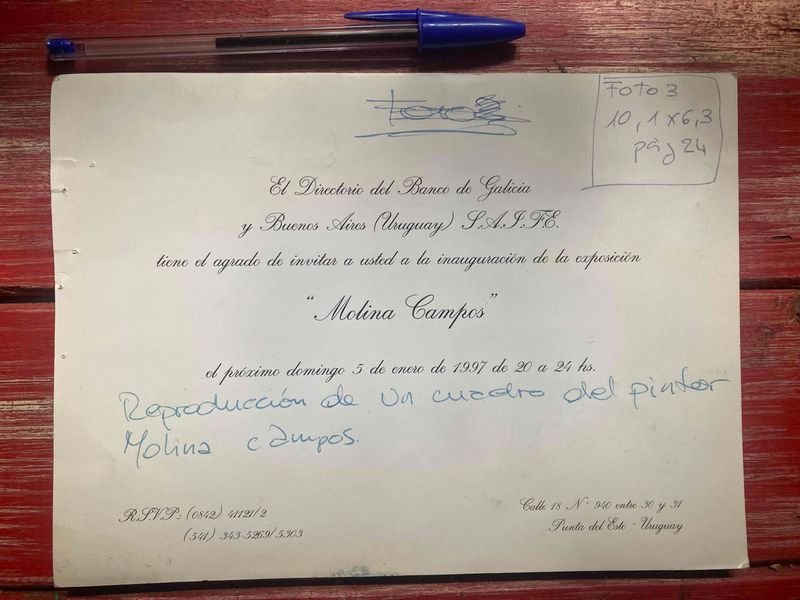 Foto 3
10,1x6,3
pág 24
El Directorio del Banco de Galicia
y Buenos Aires (Uruguay) S.A.I.F.E.
tiene el agrado de invitar a usted a la inauguración de la exposición
"Molina Campos"
el próximo domingo 5 de enero de 1.997 de 20 a 24 hs.
Reproducción de un cuadro del pintor
Molina Campos.
R.S.V.P.: (0842) 41121/2
(541) 343-5269/5303
Calle 18 Nº 940 entre 30 y 31
Punta del Este - Uruguay